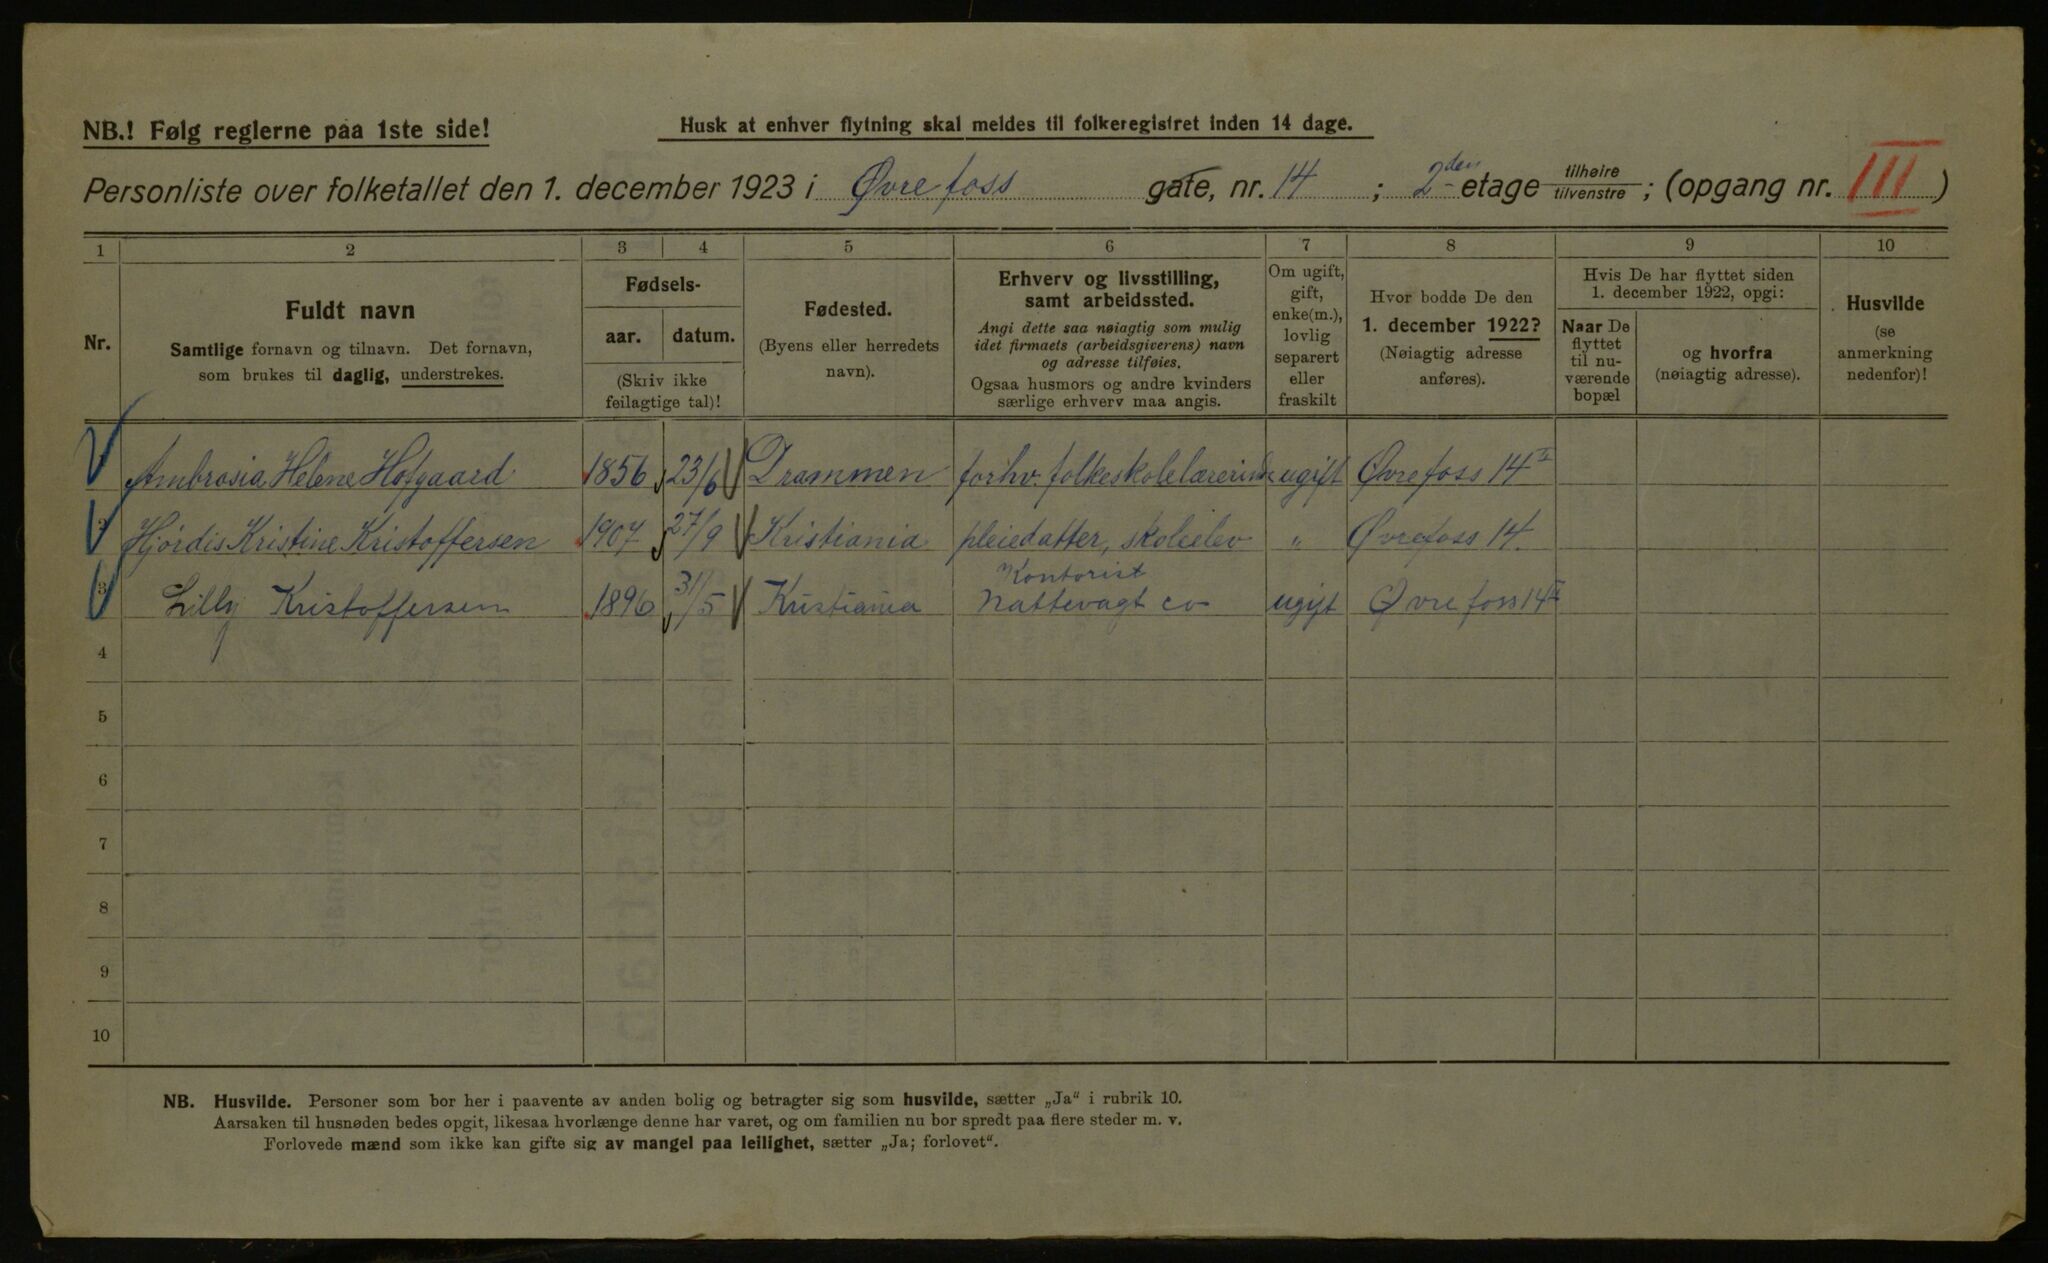 NB.! Følg reglerne paa 1ste side!
Husk at enhver flytning skal meldes til folkeregistret inden 14 dage.
Personliste over folketallet den 1. december 1923 i Øvre foss gate, nr. 14 ; 2den etage tilhøire tilvenstre ; (opgang nr. III )
1 2 3 4 5 6 7 8 9 10
Nr.
Fuldt navn
Samtlige fornavn og tilnavn. Det fornavn,
som brukes til daglig, understrekes.
Fødsels-
aar. datum.
(Skriv ikke
feilagtige tal)!
Fødested.
(Byens eller herredets
navn).
Erhverv og livsstilling,
samt arbeidssted.
Angi dette saa nøiagtig som mulig
idet firmaets (arbeidsgiverens) navn
og adresse tilføies.
Ogsaa husmors og andre kvinders
særlige erhverv maa angis.
Om ugift,
gift,
enke(m.),
lovlig
separert
eller
fraskilt
Hvor bodde De den
1. december 1922?
(Nøiagtig adresse
anføres).
Hvis De har flyttet siden
1. december 1922, opgi:
Naar De
flyttet
til nu-
værende
bopæl
og hvorfra
(nøiagtig adresse).
Husvilde
(se
anmerkning
nedenfor)!
Ambrosia Helene Hofgaard 1856 23/6 Drammen forhv. folkeskolelærerinde ugift Øvre foss 14 II
2 Hjördis Kristine Kristoffersen 1907 27/9 Kristiania pleiedatter, skoleelev " Øvrefoss 14.
3 Lilly Kristoffersen 1896 31/5 Kristiania Kontorist Nattevagt co ugift Øvre foss 14 II
4
5
6
7
8
9
10
NB. Husvilde. Personer som bor her i paavente av anden bolig og betragter sig som husvilde, sætter „Ja" i rubrik 10.
Aarsaken til husnøden bedes opgit, likesaa hvorlænge denne har varet, og om familien nu bor spredt paa flere steder m. v.
Forlovede mænd som ikke kan gifte sig av mangel paa leilighet, sætter „Ja; forlovet".